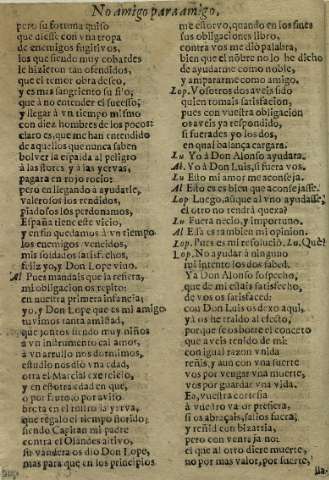 No amigo para amigo,
pero su fortuna quiso
que diesse con vna tropa
de enemigos fugitivos,
los que siendo muy cobardes
le hizieron tan ofendidos,
que el temor obra deseo,
y es mas sangriento su filo,
que à no entender el sucesso;
y llegar à vn tiempo mismo
con diez hombres de los pocos:
claro es, que me han entendido
de aquellos que nunca saben
bolver la espalda al peligro
à las flores, y à las yervas,
pagara en rojo rocio:
pero en llegando à ayudarle,
valerosos los rendimos,
piadosos los perdonamos,
España tiene este vicio,
y en fin quedamos à vn tiempo
los enemigos vencidos,
mis soldados satisfechos,
feliz yo, y Don Lope vivo.
Al. Pues mandais que la refiera,
mi obligacion os repito:
en nuestra primera infancia,
yo, y Don Lope que es mi amigo
tuvimos tanta amistad,
que juntos siendo muy niños
à vn instrumento cal amor,
à vn arrullo nos dormimos,
estudio nos diò vna edad,
otra el Marcial exercicio,
y en esotra edad en que,
o por fruto, o por aviso
brota en el rostro la yerva,
que regalò el tiempo florido;
siendo Capitan mi padre
contra el Olandes altivo,
su vandera os diò Don Lope,
mas para que en los principios
me estorvo, quando en los fines
sus obligaciones libro,
contra vos me diò palabra,
bien que el nobre no lo he dicho
de ayudarme como noble,
y ampararme como amigo.
Lop. Vosotros dos aveis sido
quien tomais satisfacion,
pues con vuestra obligacion
os aveis ya respondido,
si fuerades yo los dos,
en qual balança cargara.
Lu Yo à Don Alonso ayudara.
Al. Yo à Don Luis, si fuera vos.
Lu Esto mi amor me aconseja.
Al Esto es es bien que aconsejasse.
Lop Luego, aũque al vno ayudasse,
el otro no tendrà quexa?
Lu Fuera necio, y importuno.
Al Essa es tambien mi opinion.
Lop. Pues es mi resoluciõ. Lu. Què?
Lop. No ayudar à ninguno
mi intento los dos sabed.
Ya Don Alonso sospecho,
que de mi estais satisfecho,
de vos os satisfaced:
con Don Luis os dexo aqui,
y à os he traido al efecto,
por que se os borre el conceto
que aveis tenido de mi:
con igual razon vnida
reñis, y aun con vna suerte
vos por vengar vna muerte,
vos por guardar vna vida.
Ea, vuestra cortesia
à vuestro valor prefiera,
si os abraçais, sea lo fuera,
y reñid con bizarria,
pero con ventaja no:
el que al otro diere muerte,
no por mas valor, por suerte,
lla-